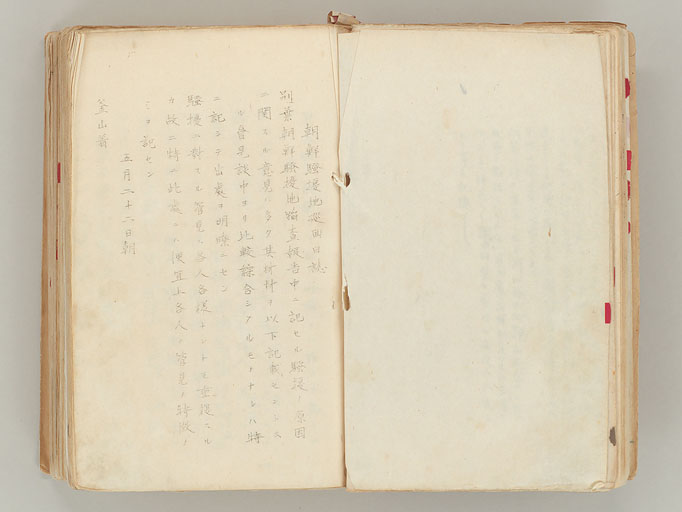 朝鮮騒擾地巡回日誌
別葉朝鮮騒擾地踏査報告中ニ記セル騒擾ノ原因
ニ関スル意見ハ多ク其材料ヲ以下記載セントスル
会見談中ヨリ比較綜合シアルモノナレハ特
ニ記シテ出處ヲ明瞭ニセン
騒擾ニ対スル管見ハ各人各様ナントモ重複スル
カ故ニ特ニ此處ニハ便宜上各人ノ管見ノ特徴ノ
ミヲ記セン
五月二十二日朝
釜山着